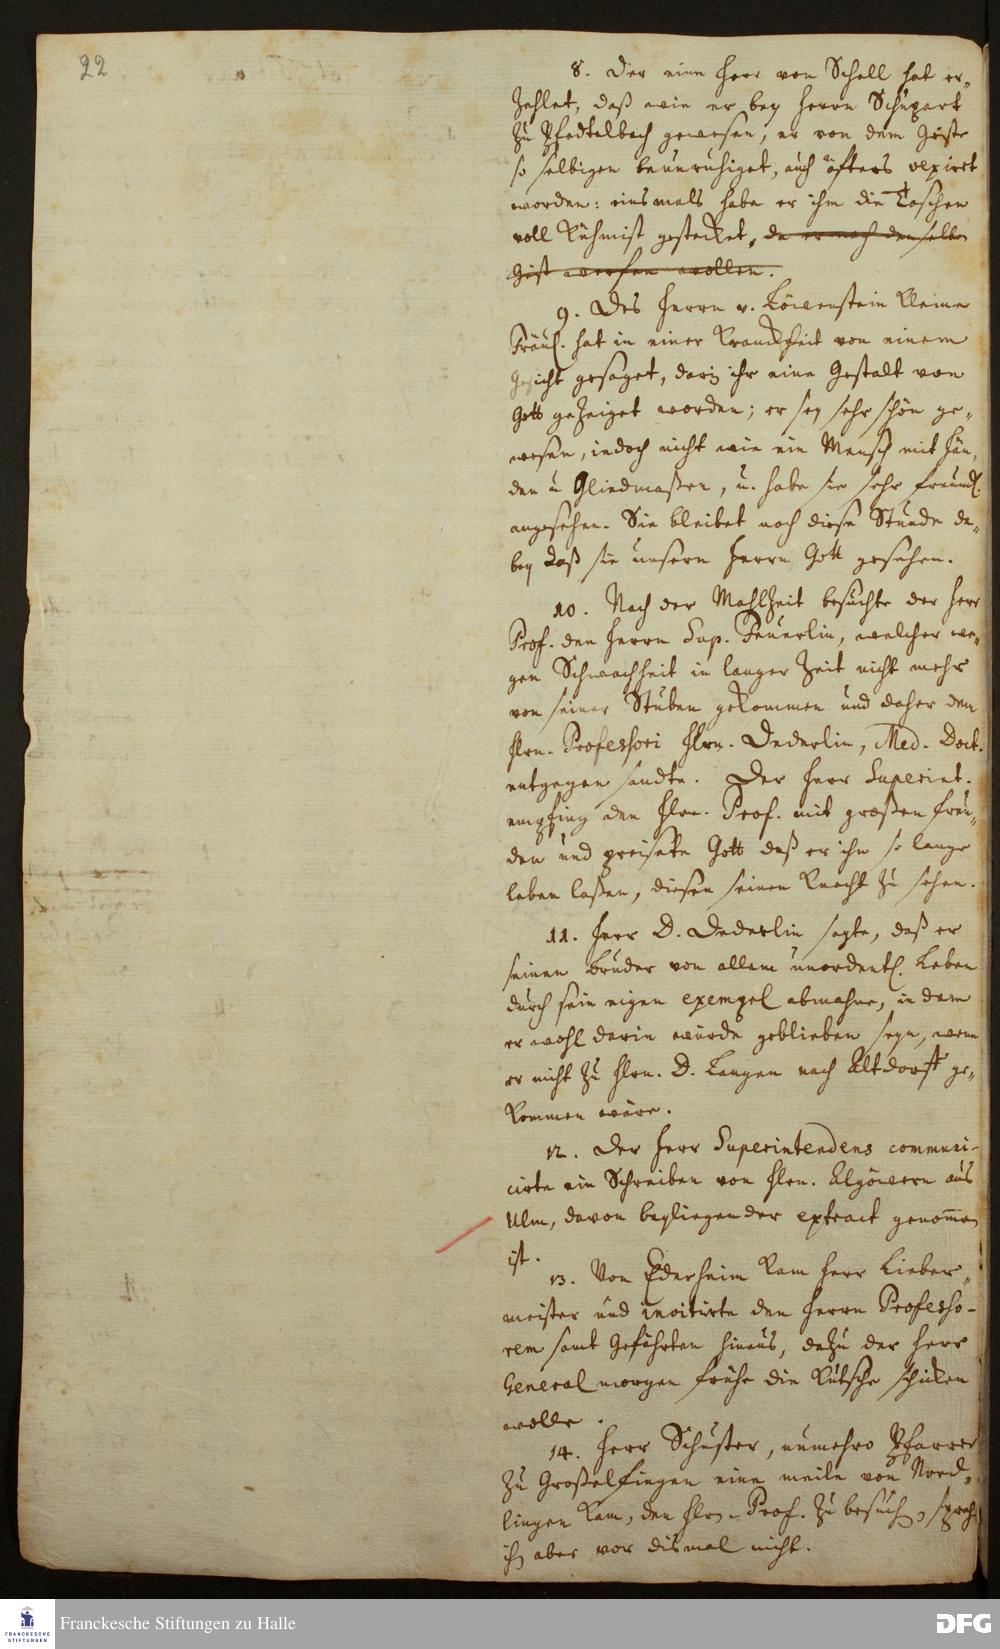 22
8. Der eine Herr von Schell hat er-
zehlet, daß wie er bey Herrn Schüpart
zu Pfedelbach gewesen, er von dem Geiste
so selbigen beunruhiget, auch öfters vexiret
worden: einsmals habe er ihm die Taschen
voll Kühmist gestecket, da er nach demselben
Geist werfen wollen.
9. Des Herrn v. Löwenstein kleine
Fräul. hat in einer Kranckheit von einem
Gesicht gesaget, darin ihr eine Gestalt von
Gott gezeiget worden; er sey sehr schön ge-
wesen, iedoch nicht wie ein Mensch mit Hän-
den u Gliedmaßen, u. habe sie sehr freundl.
angesehen. Sie bleibet noch diese Stunde da-
bey daß sie unsern Herrn Gott gesehen.
10. Nach der Mahlzeit besuchte der Herr
Prof. den Herrn Sup. Feuerlin, welcher we-
gen Schwachheit in langer Zeit nicht mehr
von seiner Stuben gekommen und daher den
Hrn. Professori Hrn. Dederlin, Med. Doct.
entgegen sandte. Der Herr Superint.
empfing den Hrn. Prof. mit großen Freu-
den und preisete Gott daß er ihn so lange
leben laßen, diesen seinen Knecht zu sehen.
11. Herr D. Dederlin sagte, daß er
seinen Bruder von allem unordentl. Leben
durch sein eigen exempel abmahne, in dem
er wohl darin würde geblieben seyn, wenn
er nicht zu Hrn. D. Langen nach Altdorff ge-
kommen wäre.
12. Der Herr Superintendens communi-
cirte ein Schreiben von Hrn. Algöwern aus
Ulm, davon beyliegender extract genommen
ist.
13. Von Ederheim kam Herr Lieber-
meister und invitirte den Herrn Professo-
rem samt Gefährten hinaus, dazu der Herr
General morgen frühe die Kutsche schicken
wolle.
14. Herr Schuster, nunmehro Pfarrer
zu Großelfingen eine meile von Nörd-
lingen kam, den Hrn. Prof. zu besuchen, sprach
ihn aber vor dismal nicht.
FRANCKESCHE
STIFTUNGEN
Franckesche Stiftungen zu Halle
DFG